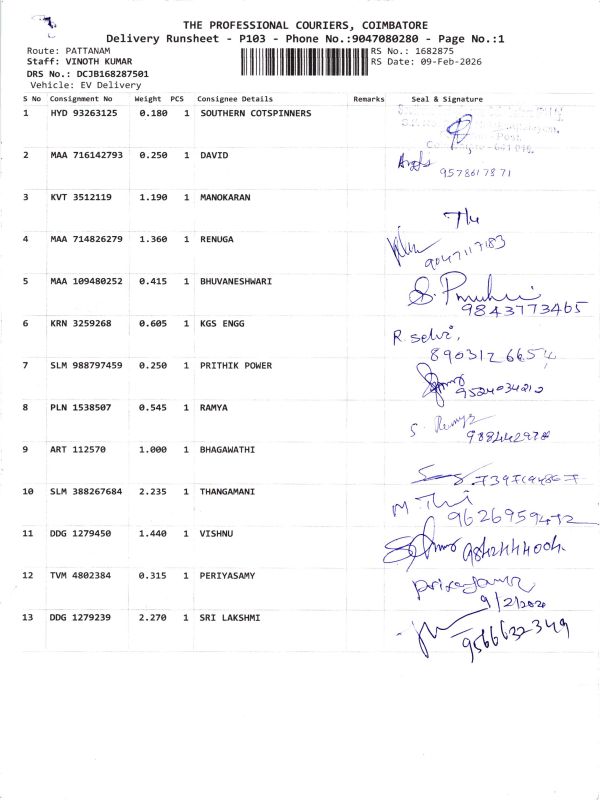 THE PROFESSIONAL COURIERS, COIMBATORE
Delivery Runsheet - P103 - Phone No.:9047080280 - Page No.:1
Route: PATTANAM
RS No.: 1682875
Staff: VINOTH KUMAR
RS Date: 09-Feb-2026
DRS No.: DCJB168287501
Vehicle: EV Delivery
S No Consignment No Weight PCS Consignee Details Remarks Seal & Signature
1 HYD 93263125 0.180 1 SOUTHERN COTSPINNERS
2 MAA 716142793 0.250 1 DAVID
9578617871
3 KVT 3512119 1.190 1 MANOKARAN
4 MAA 714826279 1.360 1 RENUGA
9047117183
5 MAA 109480252 0.415 1 BHUVANESHWARI
9843773465
6 KRN 3259268 0.605 1 KGS ENGG
R. selvi,
8903126654
7 SLM 988797459 0.250 1 PRITHIK POWER
9524034212
8 PLN 1538507 0.545 1 RAMYA
S. Ramya
9 ART 112570 1.000 1 BHAGAWATHI
10 SLM 388267684 2.235 1 THANGAMANI
9626959472
11 DDG 1279450 1.440 1 VISHNU
9842444004
12 TVM 4802384 0.315 1 PERIYASAMY
9/2/2026
13 DDG 1279239 2.270 1 SRI LAKSHMI
9566632349